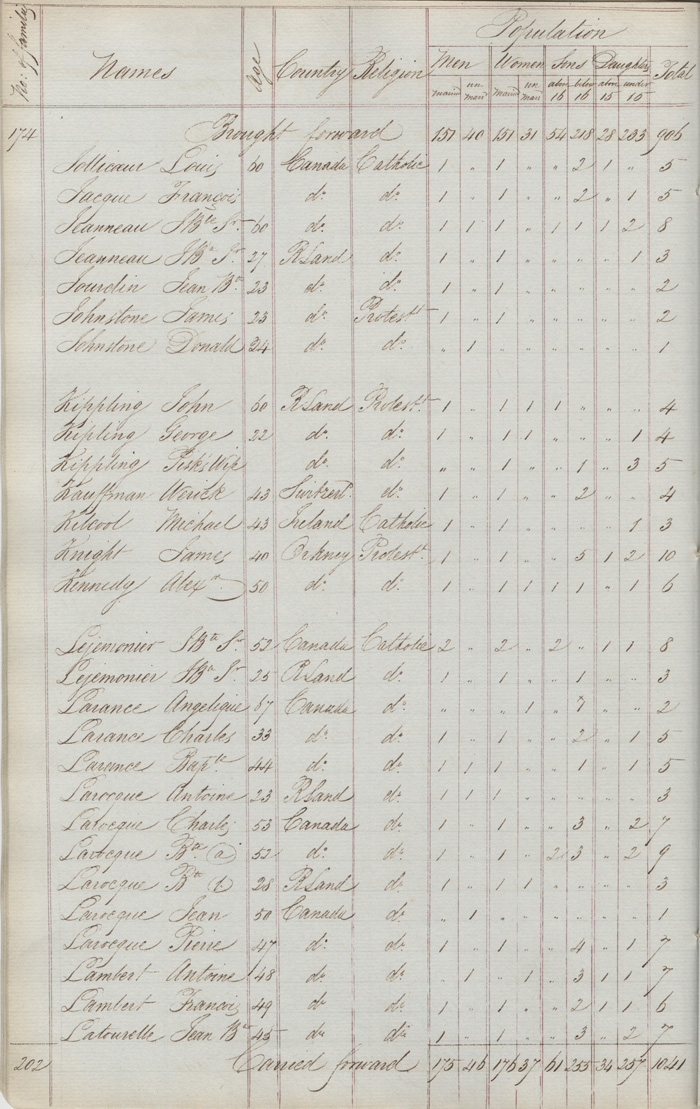 No: of family Names Age Country Religion Population
Men Women Sons Daughters Total
married un mar married un mar above 16 below 16 above 15 under 15
174 Brought forward 151 40 151 31 54 218 28 233 906
Jollicaur Louis 60 Canada Catholic 1 " 1 " " 2 1 " 5
Jacque Francois do do 1 " 1 " " 2 " 1 5
Jeanneau J Bte Sr 60 do do 1 1 1 " 1 1 1 2 8
Jeanneau J Bte Jr 27 R Land do 1 " 1 " " " " 1 3
Jourdin Jean Bte 23 do do 1 " 1 " " " " " 2
Johnstone James 23 do Protestt 1 " 1 " " " " " 2
Johnstone Donald 24 do do " 1 " " " " " " 1
Kippling John 60 R Land Protestt 1 " 1 1 1 " " " 4
Kipling George 22 do do 1 " 1 1 " " " 1 4
Kippling Wife do do " " 1 " " 1 " 3 5
Kauffman 43 do 1 " 1 " " 2 " " 4
Kilcool Michael 43 Ireland Catholic 1 " 1 " " " " 1 3
Knight James 40 Orkney Protestt 1 " 1 " " 5 1 2 10
Kennedy Alexr 50 do do 1 " 1 1 1 1 " 1 6
Lejemonier J Bte Sr 52 Canada Catholic 2 " 2 " 2 " 1 1 8
Lejemonier J Bte Jr 25 R Land do 1 " 1 " " 1 " " 3
Larance Angelique 67 Canada do " " " 1 " " " 2
Larance Charles 33 do do 1 " 1 " " 2 " 1 5
Larance Bapte 44 do do 1 1 1 " " 1 " 1 5
Larocque Antoine 23 R Land do 1 1 1 " " " " " 3
Larocque Charles 53 Canada do 1 " 1 " " 3 " 2 7
Larocque Bte (a) 52 do do 1 " 1 " 2 3 " 2 9
Larocque Bte (b) 28 R Land do 1 " 1 1 " " " " 3
Larocque Jean 50 Canada do " 1 " " " " " " 1
Larocque Pierre 47 do do 1 " 1 " " 4 " 1 7
Lambert Antoine 48 do do " 1 " 1 " 3 1 1 7
Lambert Francois 49 do do 1 " 1 " " 2 1 1 6
Latourelle Jean Bte 45 do do 1 " 1 " " 3 " 2 7
202 Carried forward 175 46 176 37 61 255 34 257 1041